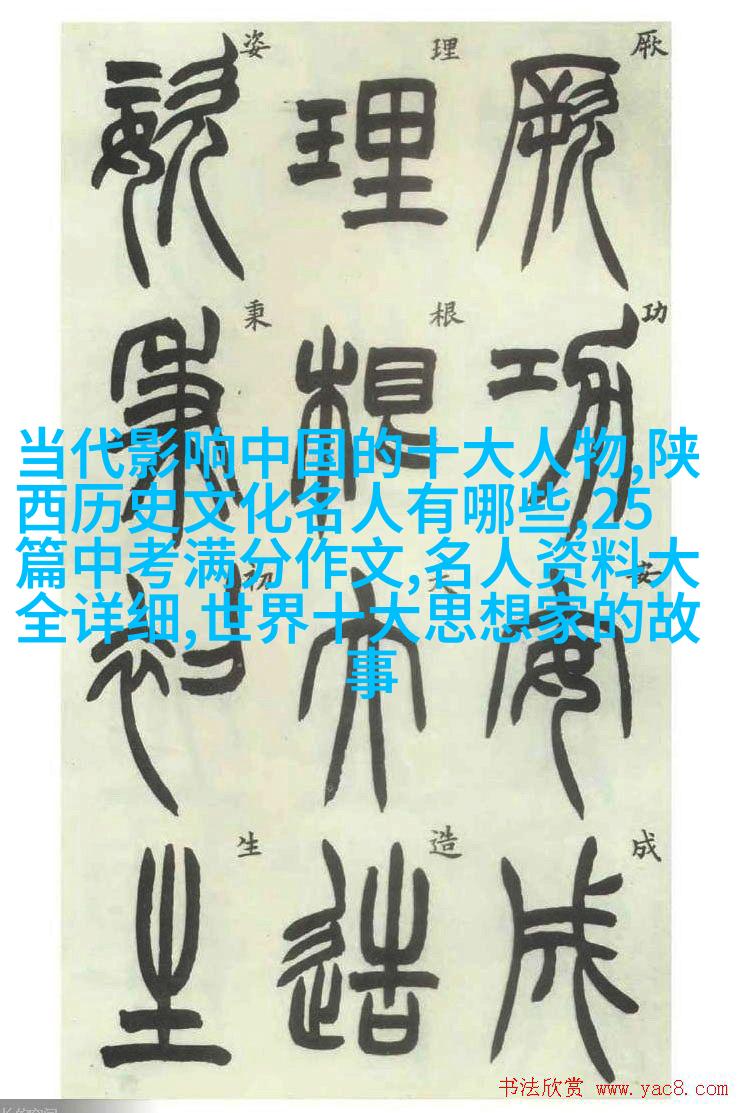 厥功安成
厥功安成
理根大造
理根大造
姿秉初生
姿秉初生
当代影响中国的十大人物,陕
西历史文化名人有哪些,25
篇中考满分作文,名人资料大
全详细,世界十大思想家的故
事
书法欣赏 www.yac8.com